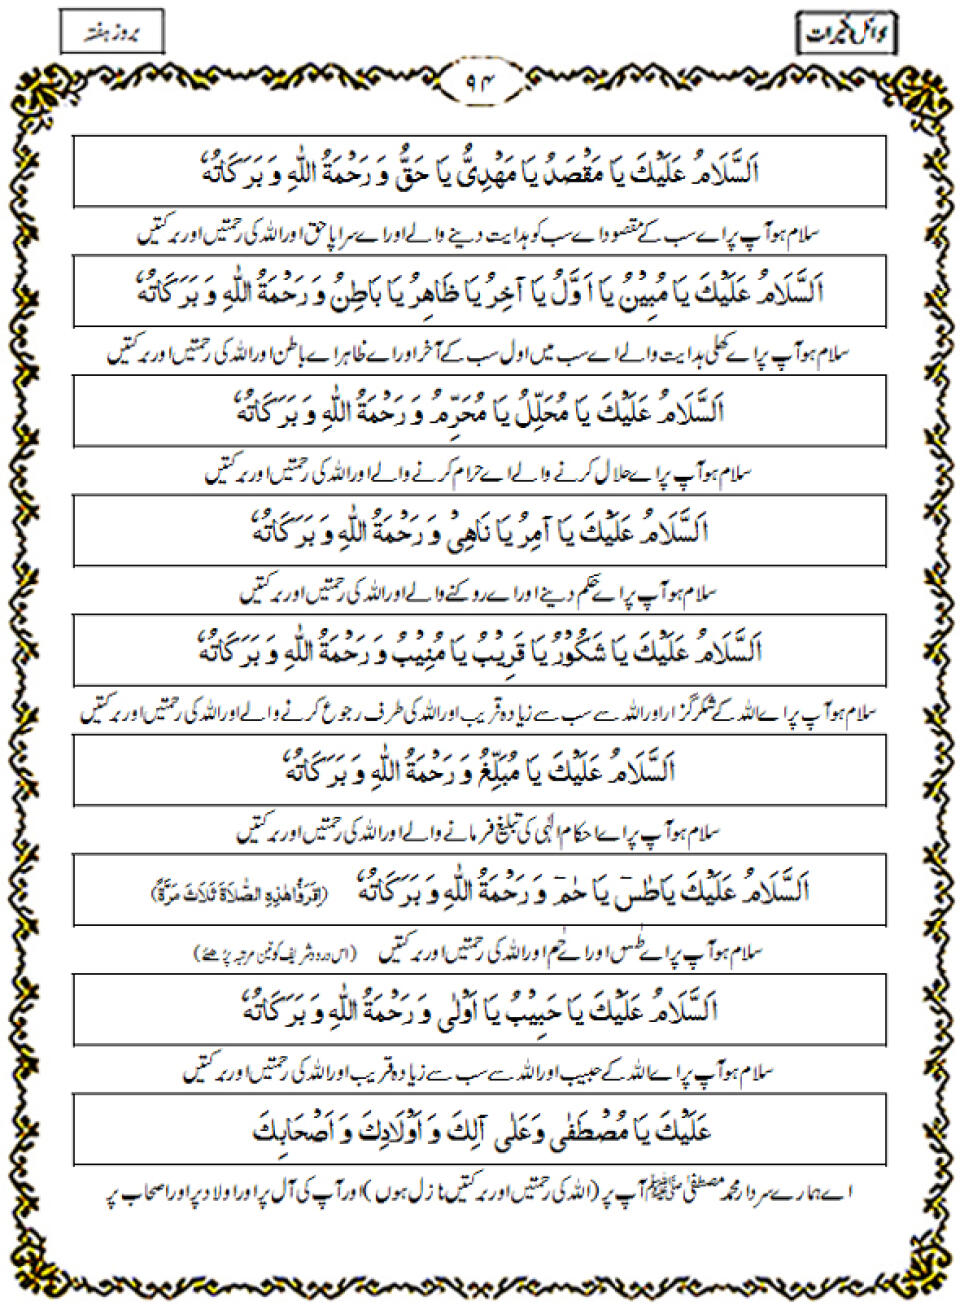 بروز ہفتہ
۹۴
اَلسَّلَامُ عَلَيْكَ يَا مَقْصَدُ يَا مَهْدِيُّ يَا حَقُّ وَ رَحْمَةُ اللّٰهِ وَ بَرَكَاتُهٗ
سلام ہو آپ پر اے سب کے مقصود اے سب کو ہدایت دینے والے اور اے سراپا حق اور اللہ کی رحمتیں اور برکتیں
اَلسَّلَامُ عَلَيْكَ يَا مُبِيْنُ يَا اَوَّلُ يَا آخِرُ يَا ظَاهِرُ يَا بَاطِنُ وَ رَحْمَةُ اللّٰهِ وَ بَرَكَاتُهٗ
سلام ہو آپ پر اے کھلی ہدایت والے اے سب میں اول سب کے آخر اور اے ظاہر اے باطن اور اللہ کی رحمتیں اور برکتیں
اَلسَّلَامُ عَلَيْكَ يَا مُحَلِّلُ يَا مُحَرِّمُ وَ رَحْمَةُ اللّٰهِ وَ بَرَكَاتُهٗ
سلام ہو آپ پر اے حلال کرنے والے اے حرام کرنے والے اور اللہ کی رحمتیں اور برکتیں
اَلسَّلَامُ عَلَيْكَ يَا آمِرُ يَا نَاهِيْ وَ رَحْمَةُ اللّٰهِ وَ بَرَكَاتُهٗ
سلام ہو آپ پر اے حکم دینے اور اے روکنے والے اور اللہ کی رحمتیں اور برکتیں
اَلسَّلَامُ عَلَيْكَ يَا شَكُوْرُ يَا قَرِيْبُ يَا مُنِيْبُ وَ رَحْمَةُ اللّٰهِ وَ بَرَكَاتُهٗ
سلام ہو آپ پر اے اللہ کے شکر گزار اور اللہ سے سب سے زیادہ قریب اور اللہ کی طرف رجوع کرنے والے اور اللہ کی رحمتیں اور برکتیں
اَلسَّلَامُ عَلَيْكَ يَا مُبَلِّغُ وَ رَحْمَةُ اللّٰهِ وَ بَرَكَاتُهٗ
سلام ہو آپ پر اے احکام الٰہی کی تبلیغ فرمانے والے اور اللہ کی رحمتیں اور برکتیں
اَلسَّلَامُ عَلَيْكَ يَا طٰسٓ يَا حٰمٓ وَ رَحْمَةُ اللّٰهِ وَ بَرَكَاتُهٗ (اِقْرَؤُا هٰذِهِ الصَّلَاةَ ثَلَاثَ مَرَّةً)
سلام ہو آپ پر اے طٰسٓ اور اے حٰمٓ اور اللہ کی رحمتیں اور برکتیں (اس درود شریف کو تین مرتبہ پڑھئے)
اَلسَّلَامُ عَلَيْكَ يَا حَبِيْبُ يَا اَوْلٰى وَ رَحْمَةُ اللّٰهِ وَ بَرَكَاتُهٗ
سلام ہو آپ پر اے اللہ کے حبیب اور اللہ سے سب سے زیادہ قریب اور اللہ کی رحمتیں اور برکتیں
عَلَيْكَ يَا مُصْطَفٰى وَعَلٰى آلِكَ وَ اَوْلَادِكَ وَ اَصْحَابِكَ
اے ہمارے سردار محمد مصطفیٰ ﷺ آپ پر (اللہ کی رحمتیں اور برکتیں نازل ہوں) اور آپ کی آل پر اور اولاد پر اور اصحاب پر